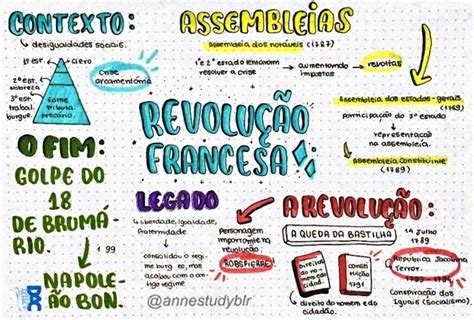 CONTEXTO:
→ desigualdades sociais.
1º est. → clero
2º est.
nobreza
3º est.
trabal.
burgue.
fome
tributa
precário.
Crise
orçamentária
ASSEMBLEIAS
Assembleia dos notáveis (1787)
1º e 2º estado tentaram
resolver a crise
aumentando
impostos
revoltas
Assembleia dos estados-gerais.
(1789)
participação do 3º estado
representação
na assembleia.
Assembleia Constituinte
(1789)
REVOLUÇÃO
FRANCESA!
O FIM:
GOLPE DO
18
DE BRUMÁ-
RIO.
NAPOLE-
ÃO BON.
LEGADO
Liberdade, Igualdade,
Fraternidade
consolidou o regi
me burguês, mas
acabou com o an
tigo regime
Personagem
importante na
revolução:
ROBSPIERRE
A REVOLUÇÃO:
A QUEDA DA BASTILHA
14 julho
1789
direitos
do ho
mem e do
cidad.
consti
tuição
1791
→ direito do homem e do
cidadão.
República Jacobina
Terror.
Conspiração dos
Iguais (socialismo)
@annestudyblr